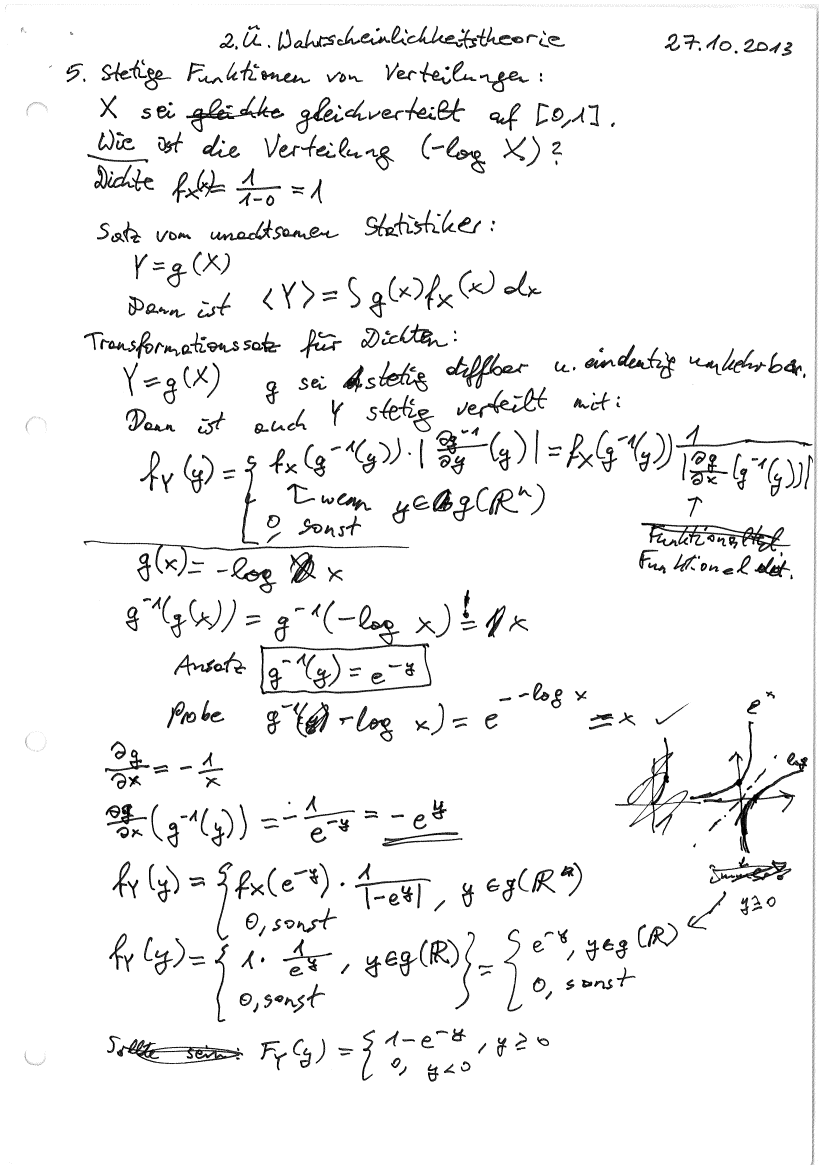 2. Ü. Wahrscheinlichkeitstheorie 27.10.2013
5. Stetige Funktionen von Verteilungen:
X sei gleichverteilt auf [0,1].
Wie ist die Verteilung (-log X)?
Dichte f_X(x) = 1/(1-0) = 1
Satz vom unachtsamen Statistiker:
Y = g(X)
Dann ist <Y> = ∫ g(x) f_X(x) dx
Transformationssatz für Dichten:
Y = g(X) g sei stetig diffbar u. eindeutig umkehrbar.
Dann ist auch Y stetig verteilt mit:
f_Y(y) = { f_X(g^-1(y)) · | ∂g^-1/∂y (y) | = f_X(g^-1(y)) 1/|∂g/∂x (g^-1(y))|
↑ wenn y ∈ g(ℝ^n)
0, sonst
↑
Funktionaldet.
g(x) = -log x
g^-1(g(x)) = g^-1(-log x) =! x
Ansatz g^-1(y) = e^-y
Probe g^-1(-log x) = e^(--log x) = x ✓
e^x
log
∂g/∂x = - 1/x
∂g/∂x (g^-1(y)) = - 1/e^-y = - e^y
f_Y(y) = { f_X(e^-y) · 1/|-e^y|, y ∈ g(ℝ)
0, sonst
y ≥ 0
f_Y(y) = { 1 · 1/e^y, y ∈ g(ℝ) } = { e^-y, y ∈ g(ℝ)
0, sonst 0, sonst
F_Y(y) = { 1 - e^-y, y ≥ 0
0, y < 0